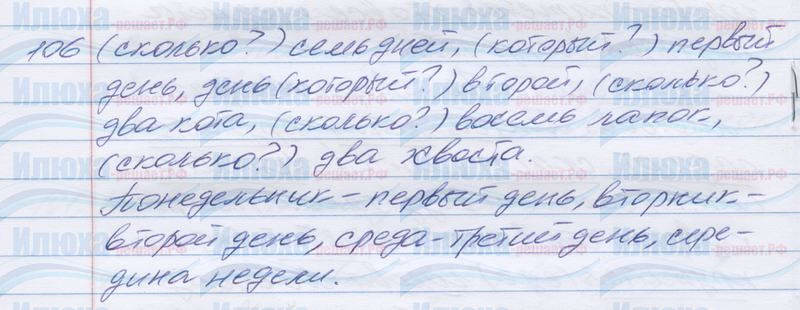 106 (сколько?) семь дней, (который?) первый
день, день (который?) второй, (сколько?)
два кота, (сколько?) восемь лапок,
(сколько?) два хвоста.
Понедельник - первый день, вторник -
второй день, среда - третий день, сере-
дина недели.